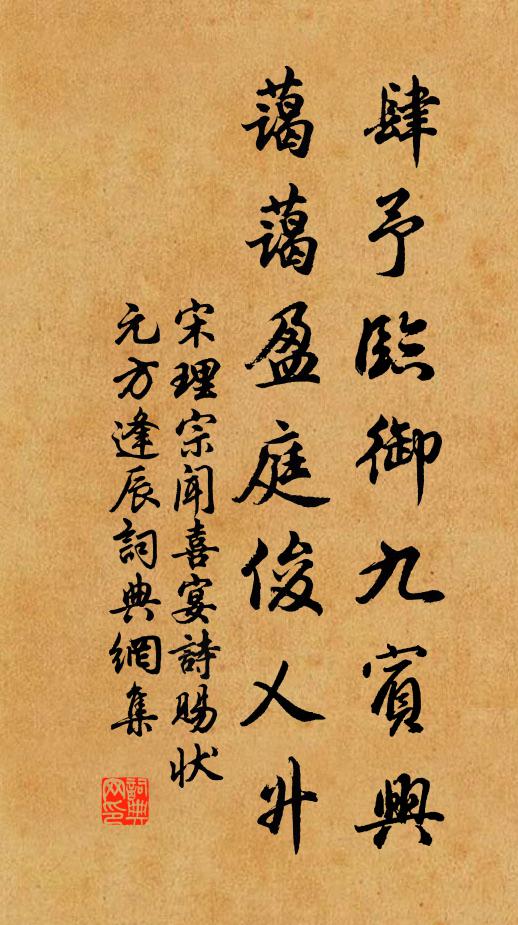 肆予臨御九賓興
藹藹盈庭俊乂升
宋理宗聞喜宴詩賜狀
元方逢辰詞典網集
詞典网印